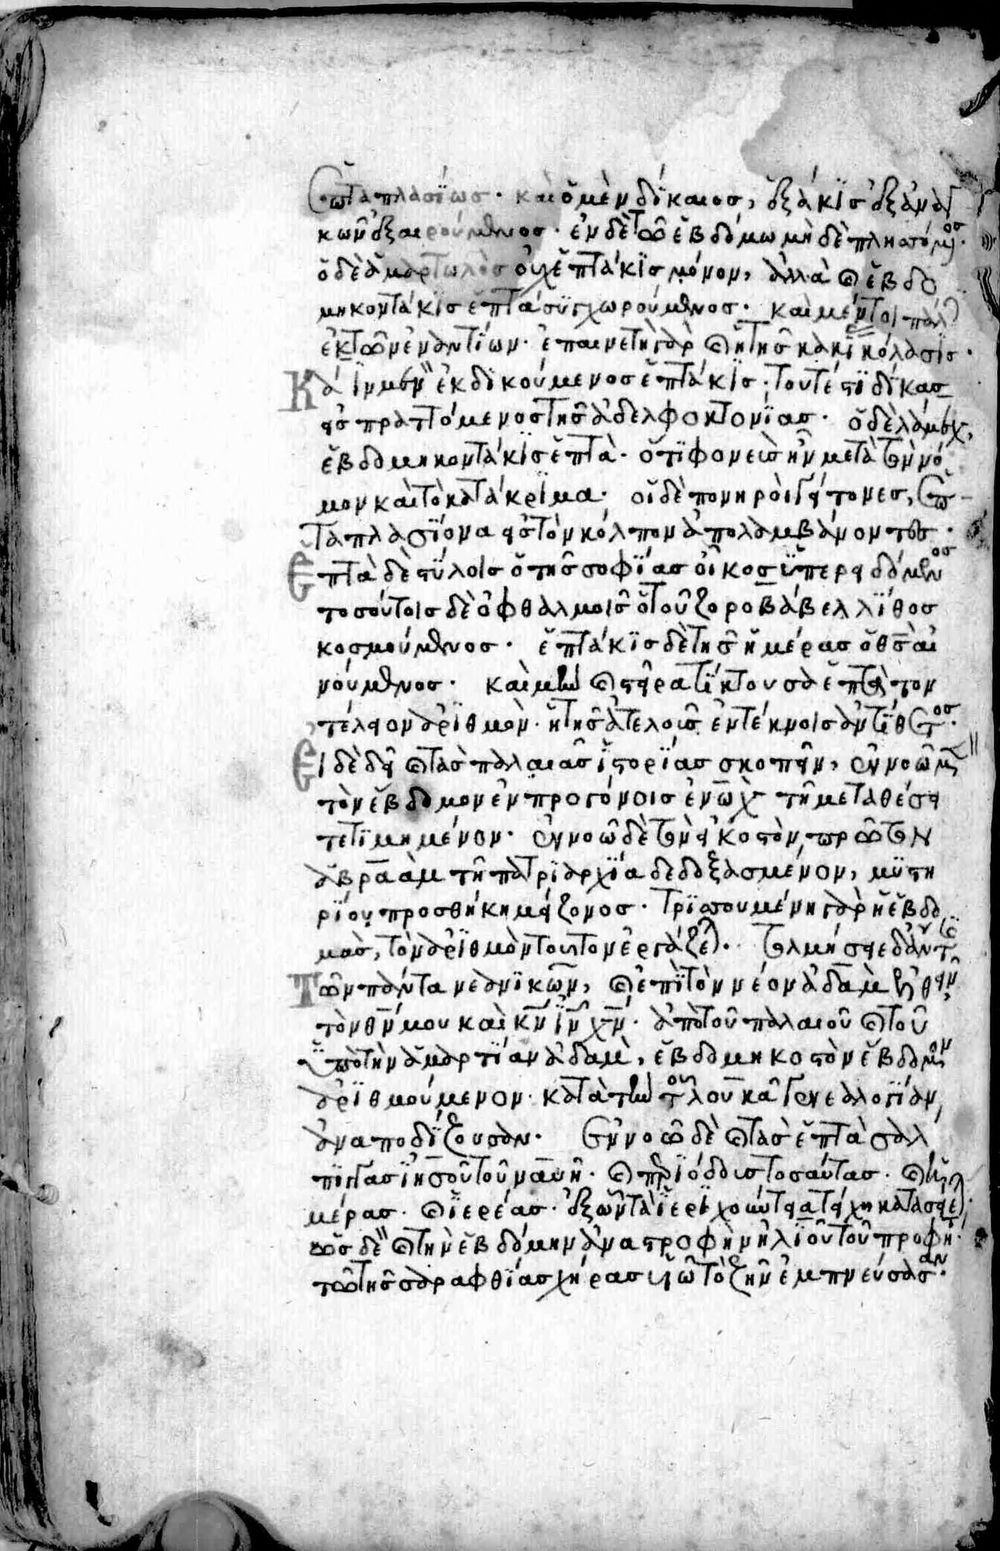 ἑπταπλασίως· καὶ ὁ μὲν δίκαιος, ἑξάκις ἐξ ἀναγ
κῶν ἐξαιρούμενος· ἐν δὲ τῶ ἑβδόμω μὴ δὲ πληττόμενος·
ὁ δὲ ἁμαρτωλὸς οὐχ ἑπτάκις μόνον, ἀλλὰ καὶ ἑβδο
μηκοντάκις ἑπτὰ συγχωρούμενος· καὶ μέντοι πάλιν
ἐκ τῶν ἐναντίων· ἐπαινετὴ γὰρ καὶ ἡ τῆς κακίας κόλασις·
Κάϊν μὲν ἐκδικούμενος ἑπτάκις· τουτέστι δίκας
εἰσπραττόμενος τῆς ἀδελφοκτονίας· ὁ δὲ λάμεχ,
ἑβδομηκοντάκις ἑπτά· ὅτι φονεὺς ἦν μετὰ τὸν νό
μον καὶ τὸ κατάκριμα· οἱ δὲ πονηροὶ γείτονες, ἑπ
ταπλασίονα εἰς τὸν κόλπον ἀπολαμβάνοντες·
Ἑπτὰ δὲ στύλοις ὁ τῆς σοφίας οἶκος ὑπερειδόμενος
τοσούτοις δὲ ὀφθαλμοῖς ὁ τοῦ ζοροβάβελ λίθος
κοσμούμενος· ἑπτάκις δὲ τῆς ἡμέρας ὁ θς αἰ
νούμενος· καὶ μὴν καὶ στεῖρα τίκτουσα ἑπτὰ τὸν
τέλειον ἀριθμὸν· ἡ τῆς ἀτελοῦς ἐν τέκνοις ἀντίθετος·
Εἰ δὲ δεῖ καὶ τὰς παλαιὰς ἱστορίας σκοπεῖν, ἐννοῶ μὲν
τὸν ἕβδομον ἐν προγόνοις ἐνὼχ τῆ μεταθέσει
τετιμημένον· ἐννοῶ δὲ τὸν εἰκοστὸν πρῶτον
ἀβραὰμ τῆ πατριαρχία δεδοξασμένον, μυστη
ρίου προσθήκη μείζονος· τρισσουμένη γὰρ ἡ ἑβδο
μὰς, τὸν ἀριθμὸν τοῦτον ἐργάζεται· τολμήσειε δ' ἄν τις
Τῶν πάντα νεανικῶν, καὶ ἐπὶ τὸν νέον ἀδὰμ ἐλθεῖν,
τὸν θν μου καὶ κν ιν χν· ἀπὸ τοῦ παλαιοῦ καὶ τοῦ
ὑπὸ τὴν ἁμαρτίαν ἀδάμ, ἑβδομηκοστὸν ἕβδομον
ἀριθμούμενον· κατὰ τὴν τοῦ λουκᾶ γενεαλογίαν,
ἀναποδίζουσαν· ἐννοῶ δὲ καὶ τὰς ἑπτὰ σάλ
πιγγας ἰησοῦ τοῦ ναυῆ· καὶ περιόδους τοσαύτας· καὶ ἡ
μέρας· καὶ ἱερέας· ἐξ ὧν τὰ ἱεριχούντεια τείχη κατασείεται·
ὡς δὲ καὶ τὴν ἑβδόμην ἀναστροφὴν ἠλιοὺ τοῦ προφήτου·
τῶ τῆς σαραφθίας χήρας υἱῶ τὸ ζῆν ἐμπνεύσασαν·